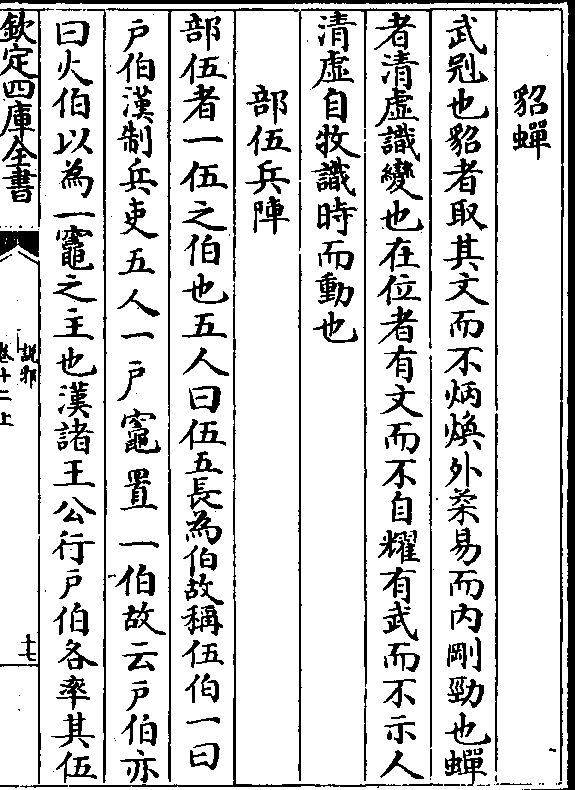 貂蟬
武剋也貂者取其文而不炳煥外柔易而内剛勁也蟬
者清虛識變也在位者有文而不自耀有武而不示人
清虛自牧識時而動也
部伍兵陣
部伍者一伍之伯也五人曰伍五長為伯故稱伍伯一曰
戶伯漢制兵吏五人一戶竈置一伯故云戶伯亦
曰火伯以為一竈之主也漢諸王公行戶伯各率其伍
欽定四庫全書
說郛
卷十二上
十七